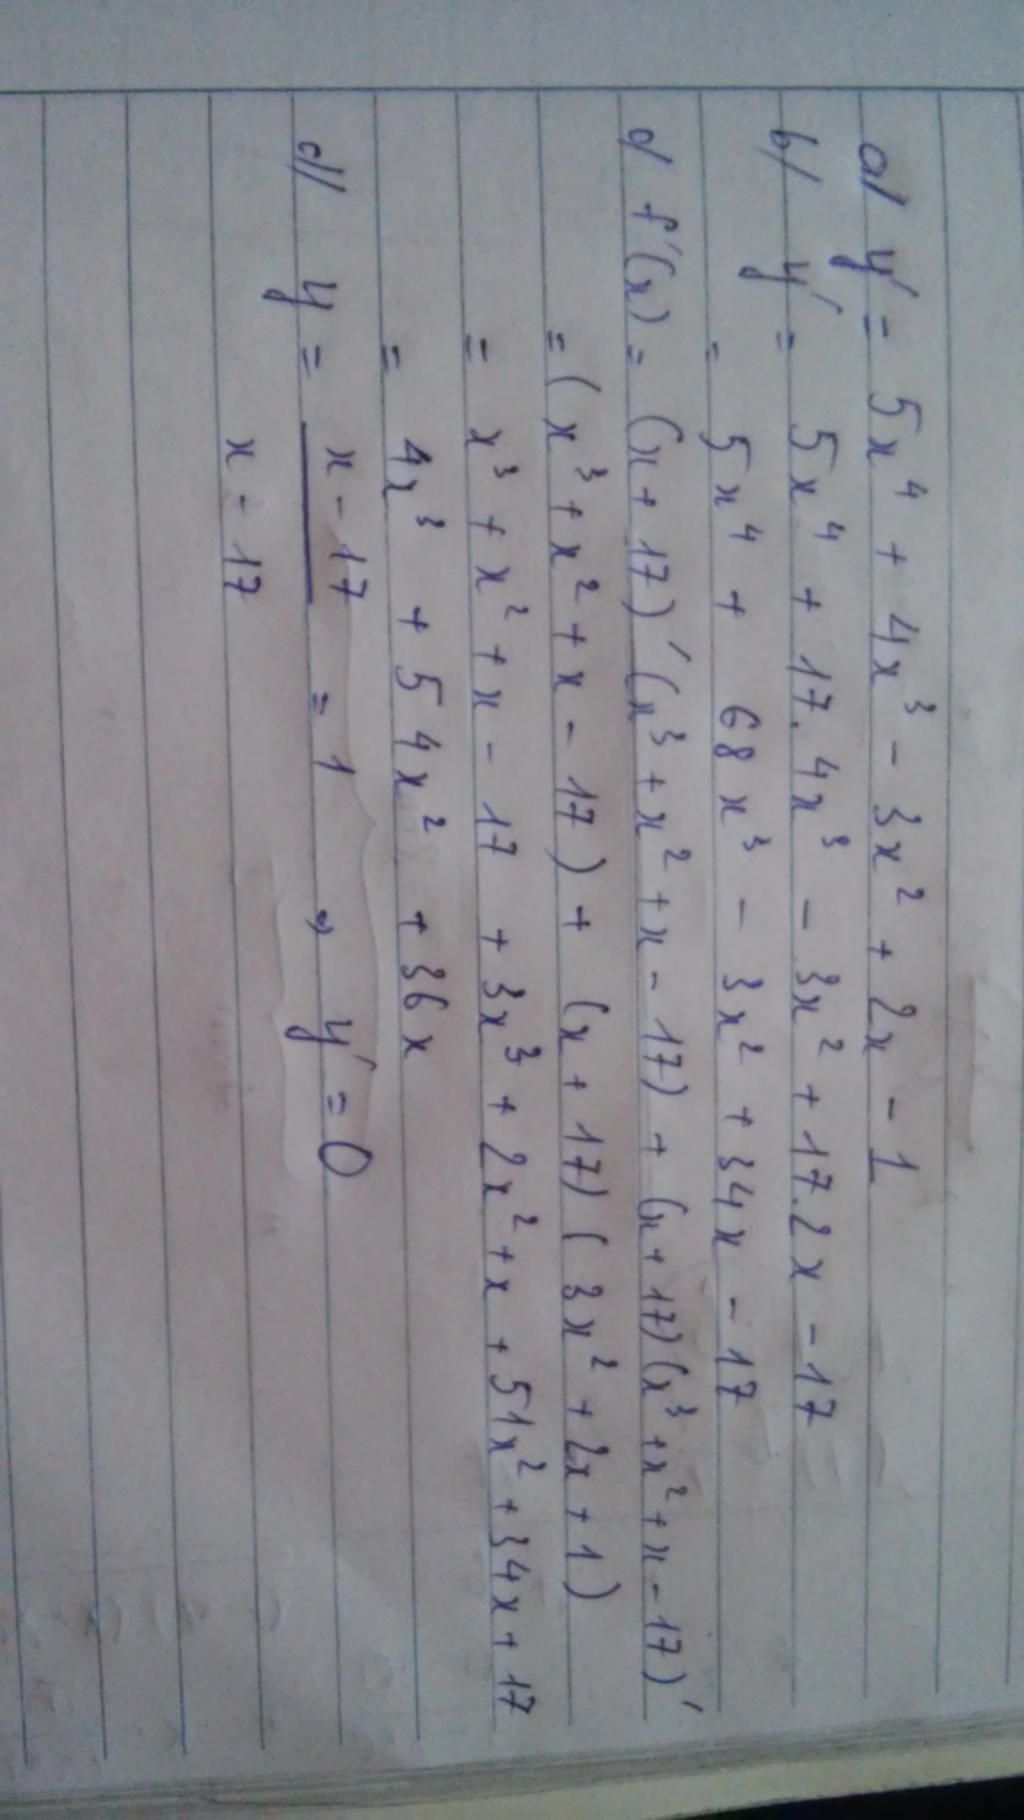 a/ y' = 5x⁴ + 4x³ - 3x² + 2x - 1
b/ y' = 5x⁴ + 17.4x³ - 3x² + 17.2x - 17
= 5x⁴ + 68x³ - 3x² + 34x - 17
c/ f'(x) = (x + 17)' (x³ + x² + x - 17) + (x + 17)(x³ + x² + x - 17)'
= (x³ + x² + x - 17) + (x + 17)(3x² + 2x + 1)
= x³ + x² + x - 17 + 3x³ + 2x² + x + 51x² + 34x + 17
= 4x³ + 54x² + 36x
d/ y = x - 17 / x - 17 = 1 => y' = 0